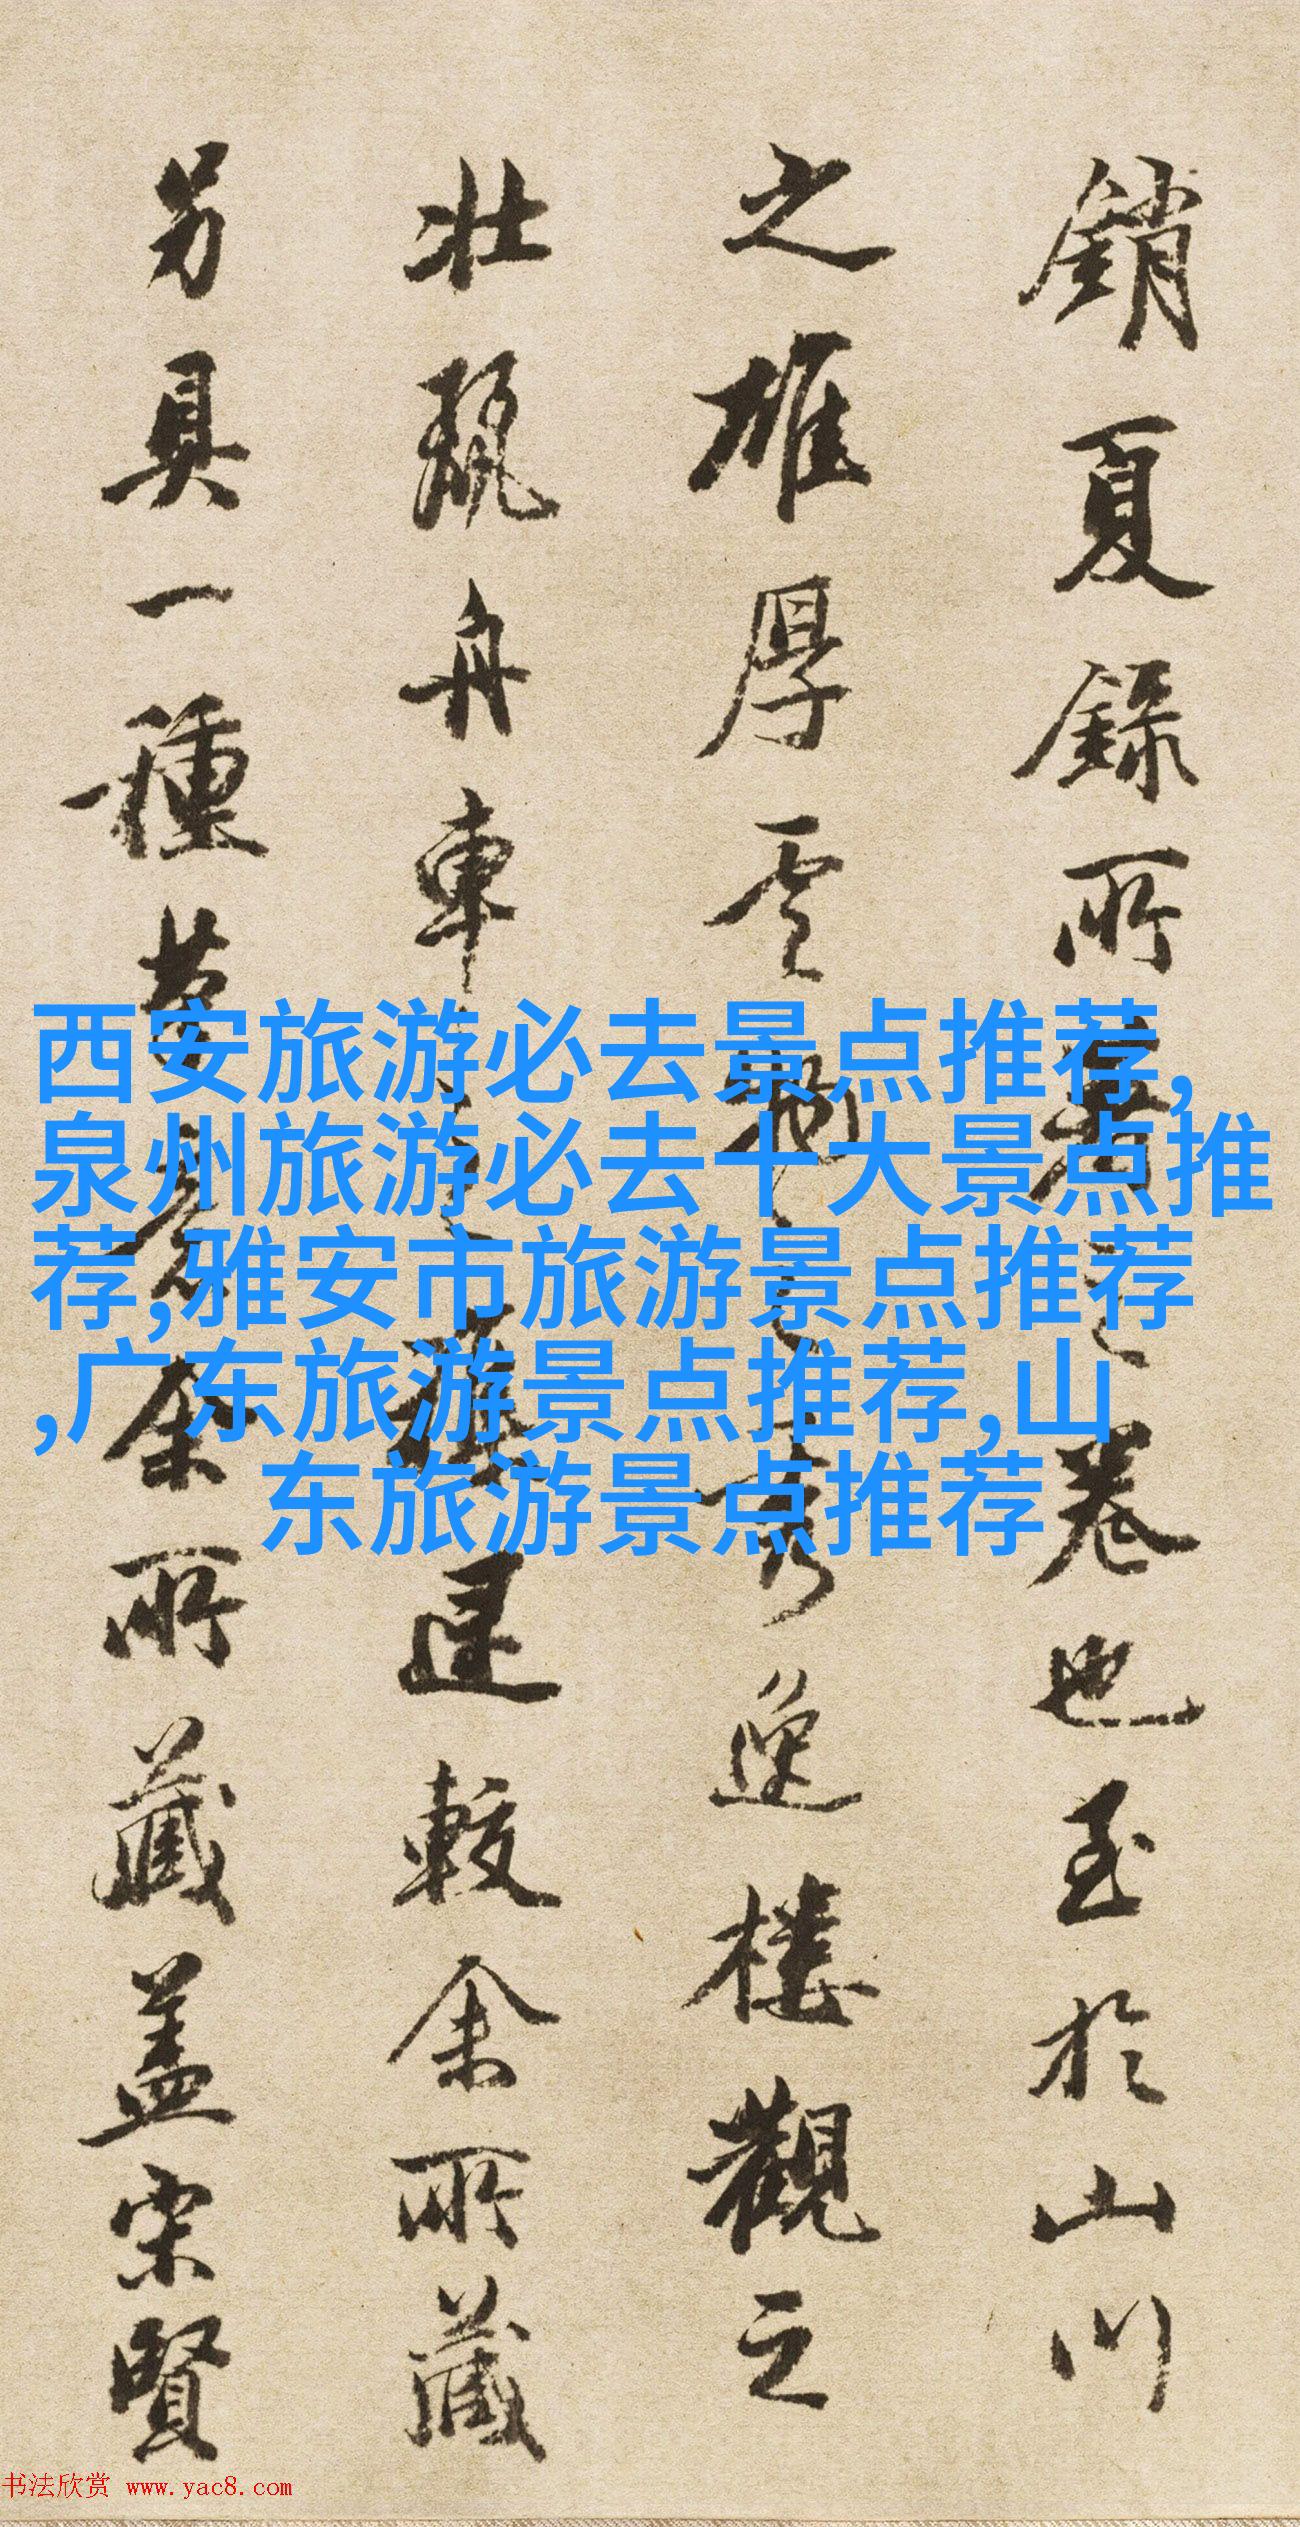 銷夏録所著之卷也至於山川
之雄厚雲物之秀逸樓觀之
壯麗舟車較余所藏
另具一種意余所藏蓋宋賢
西安旅游必去景点推荐,
泉州旅游必去十大景点推
荐,雅安市旅游景点推荐
,广东旅游景点推荐,山
东旅游景点推荐
书法欣赏 www.yac8.com